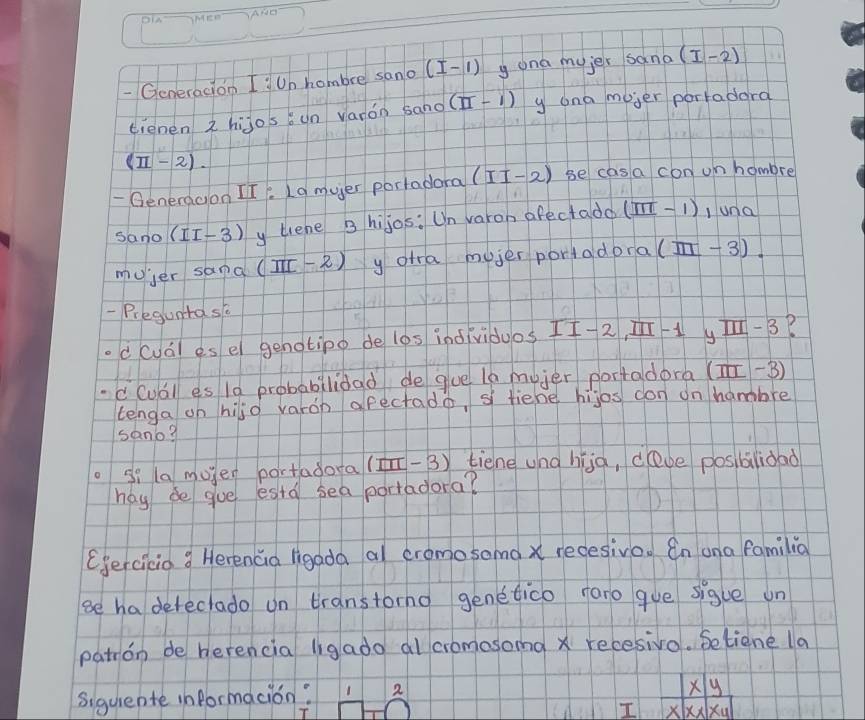 DIA MES AÑO
- Generación I: Un hombre sano (I-1) y una mujer sana (I-2)
tienen 2 hijos: un varón sano (II-1) y una mujer portadora
(II-2).
- Generacion II: La mujer portadora (II-2) se casa con un hombre
sano (II-3) y tiene 3 hijos: Un varon afectado (III-1), una
mujer sana (III-2) y otra mujer portadora (III-3).
- Preguntas:
• ¿Cuál es el genotipo de los individuos II-2, III-1 y III-3?
• ¿Cuál es la probabilidad de que la mujer portadora (III-3)
tenga un hijo varón afectado, si tiene hijos con un hombre
sano?
• si la mujer portadora (III-3) tiene una hija, ¿Que posibilidad
hay de que está sea portadora?
Ejercicio: Herencia ligada al cromosoma x recesivo. En una familia
se ha detectado un transtorno genético raro que sigue un
patrón de herencia ligado al cromosoma x recesivo. Se tiene la
siguiente información: 1 2 x y
I I x xx xy